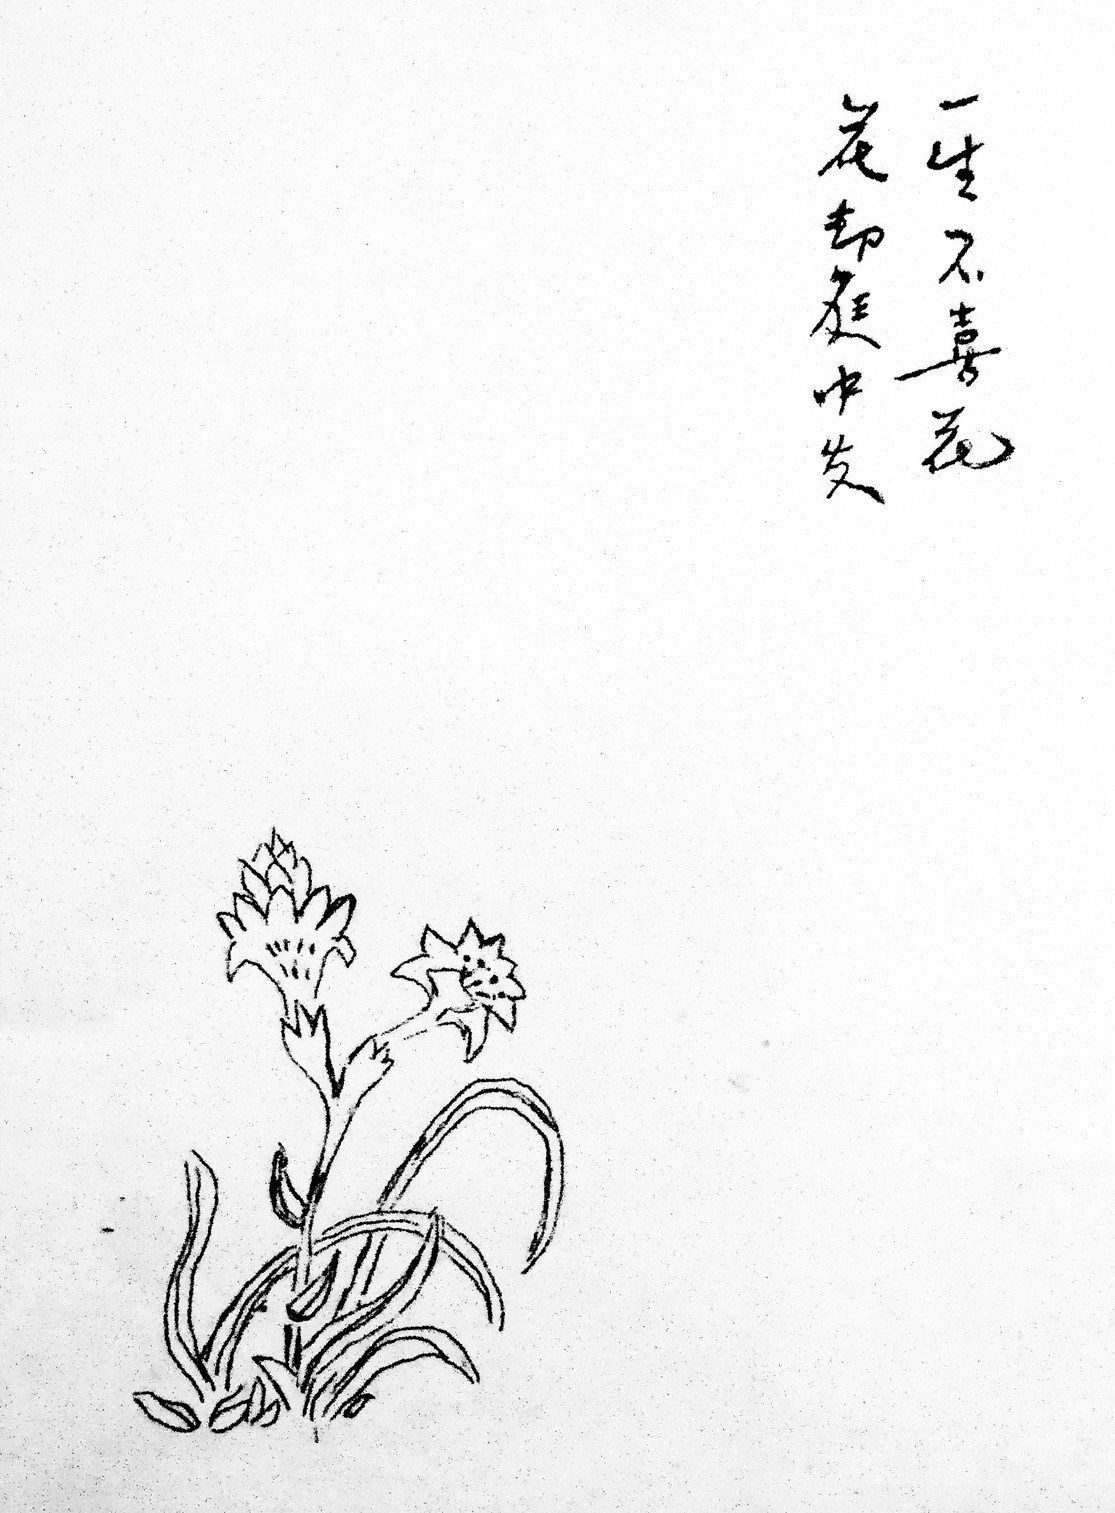 一生不喜花
花却庭中发